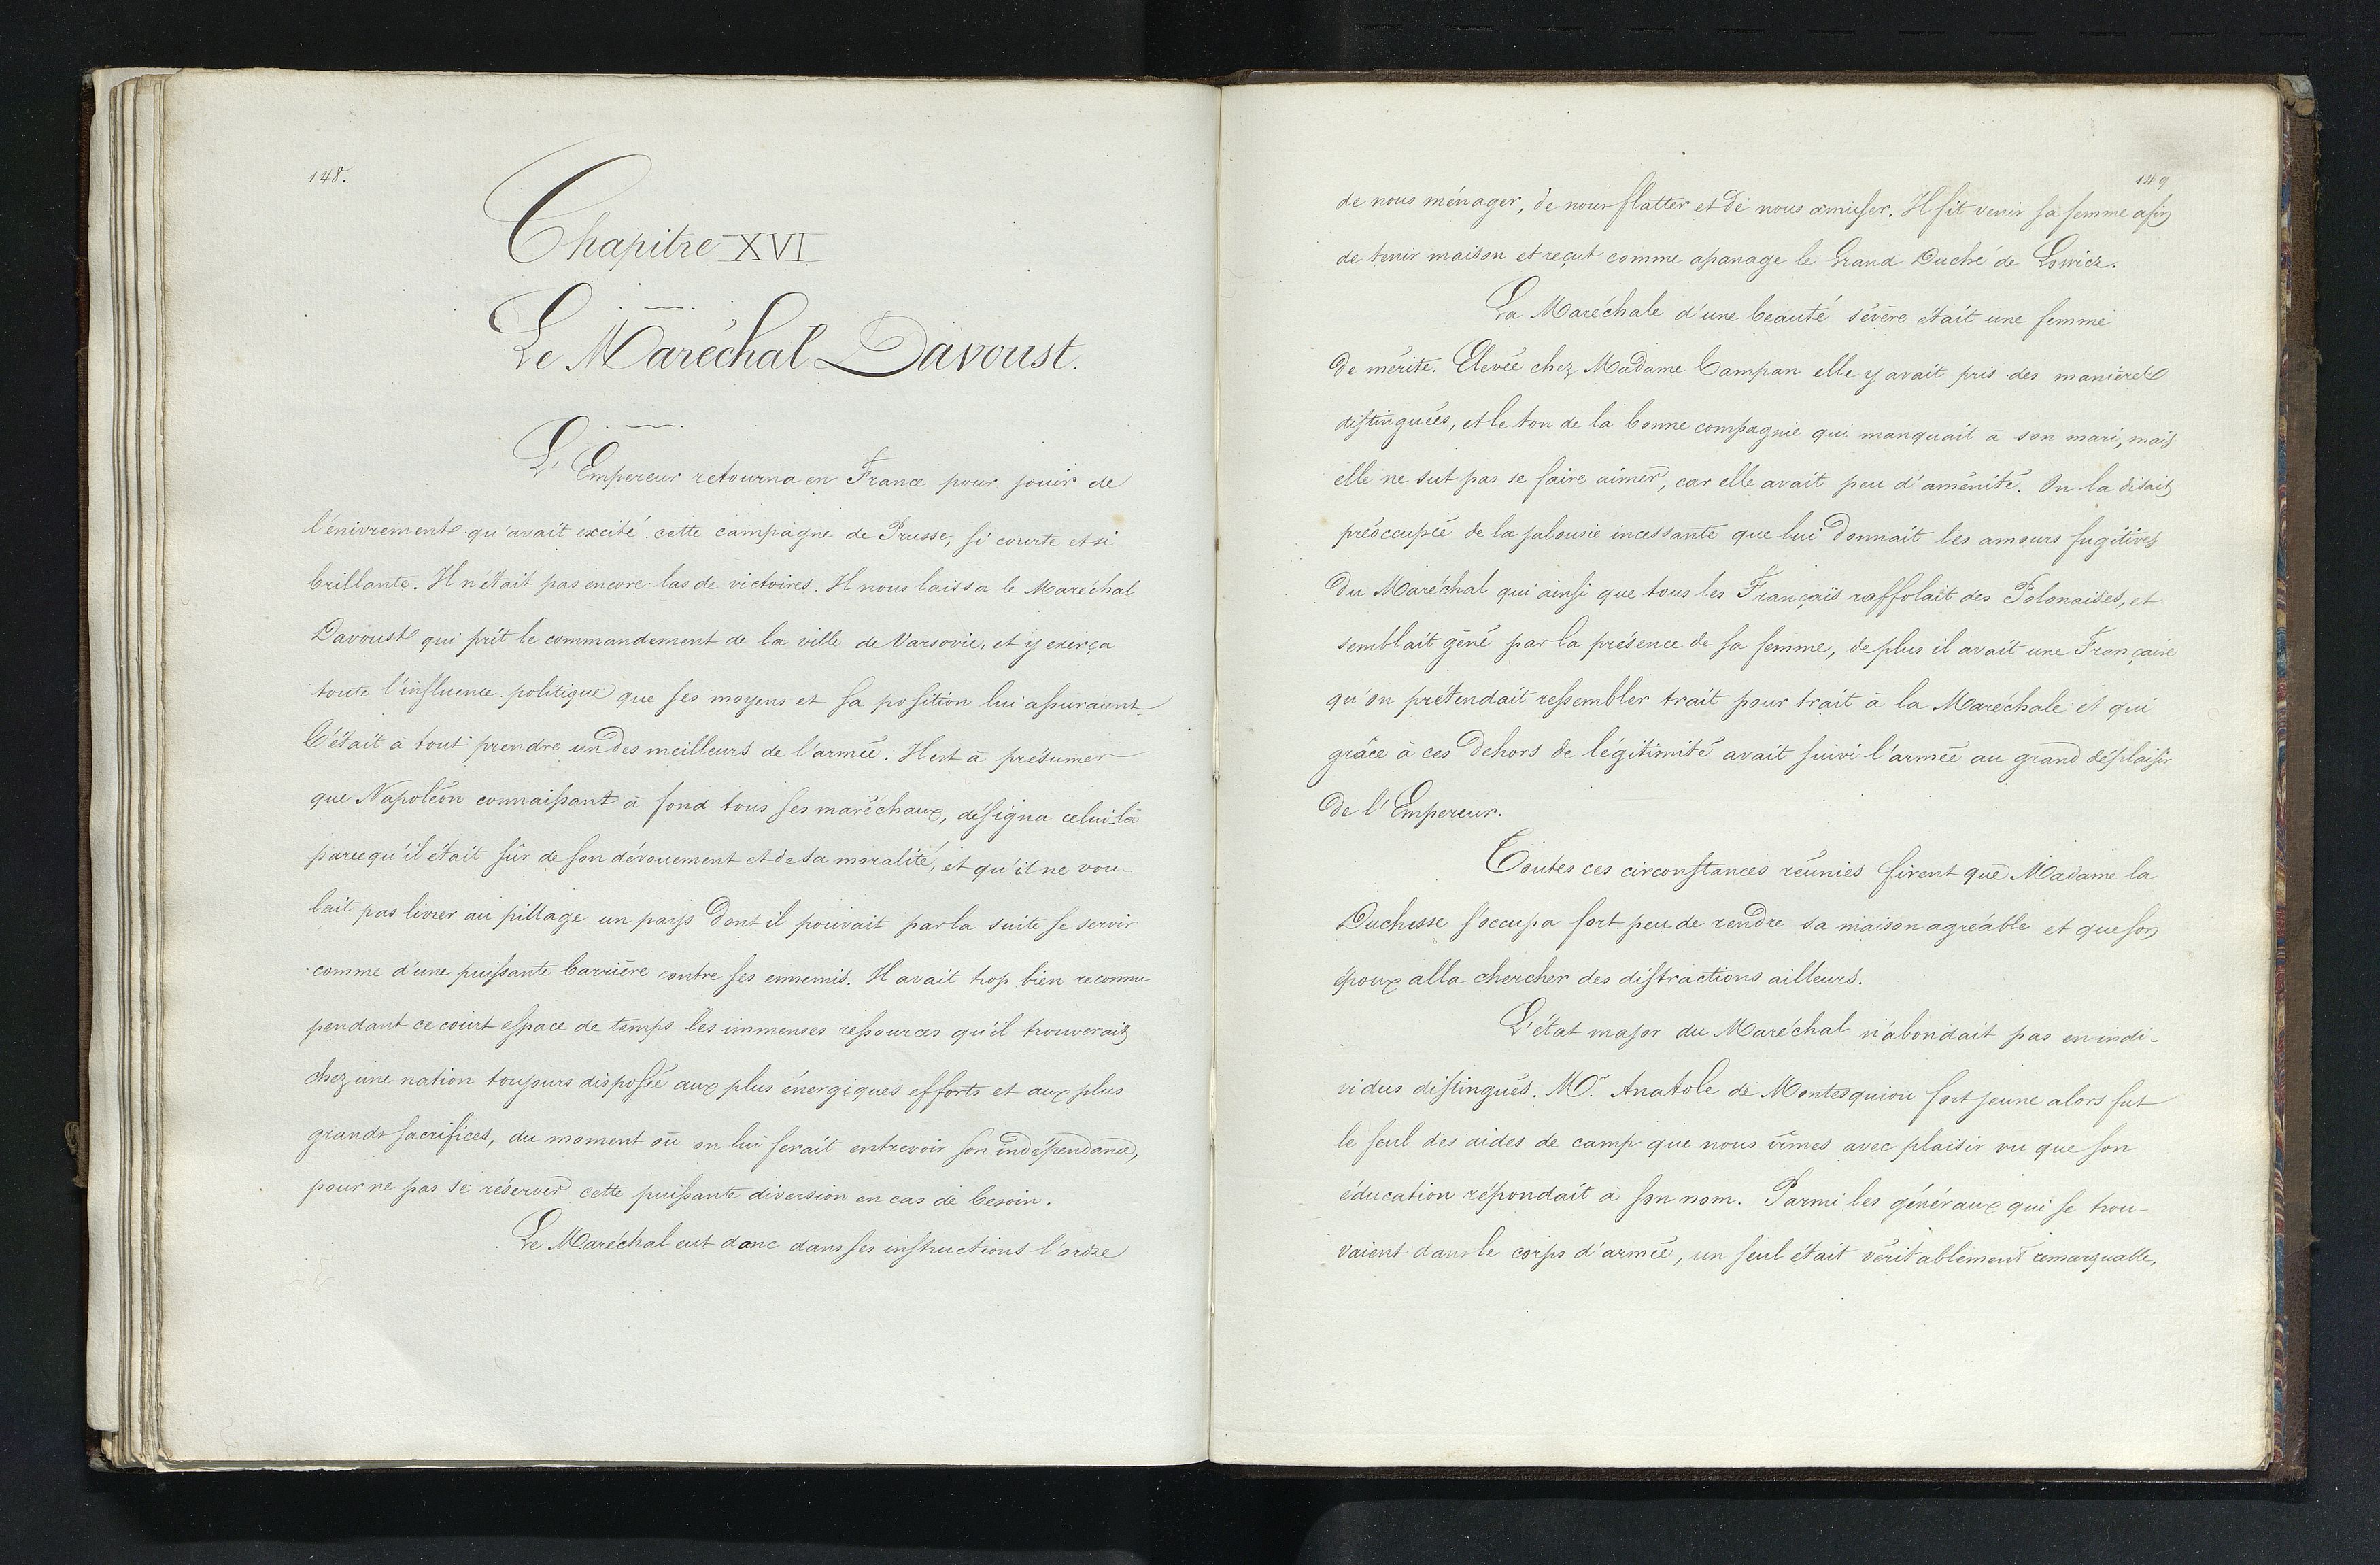 148.
Chapitre XVI
Le Maréchal Davoust.
L'Empereur retourna en France pour jouir de
l'énivrement qu'avait excité cette campagne de Prusse, si courte et si
brillante. Il n'était pas encore las de victoires. Il nous laissa le Maréchal
Davoust qui prit le commandement de la ville de Varsovie, et y exerça
toute l'influence politique que ses moyens et sa position lui assuraient.
C'était à tout prendre un des meilleurs de l'armée. Il est à présumer
que Napoléon connaissant à fond tous ses maréchaux, désigna celui-là
parcequ'il était sûr de son dévouement et de sa moralité, et qu'il ne vou-
lait pas livrer au pillage un pays dont il pouvait par la suite se servir
comme d'une puissante barrière contre ses ennemis. Il avait trop bien reconnu
pendant ce court espace de temps les immenses ressources qu'il trouverait
chez une nation toujours disposée aux plus énergiques efforts et aux plus
grands sacrifices, du moment où on lui ferait entrevoir son indépendance,
pour ne pas se réserver cette puissante diversion en cas de besoin.
Le Maréchal eut donc dans ses instructions l'ordre
149
de nous ménager, de nous flatter et de nous amuser. Il fit venir sa femme afin
de tenir maison et reçut comme apanage le Grand Duché de Lowicz.
La Maréchale d'une beauté sévère était une femme
de mérite. Elevée chez Madame Campan elle y avait pris des manières
distinguées, et le ton de la bonne compagnie qui manquait à son mari, mais
elle ne sut pas se faire aimer, car elle avait peu d'aménité. On la disait
préoccupée de la jalousie incessante que lui donnait les amours fugitives
du Maréchal qui ainsi que tous les Français raffolait des Polonaises, et
semblait gêné par la présence de sa femme, de plus il avait une Française
qu'on prétendait ressembler trait pour trait à la Maréchale et qui
grâce à ces dehors de légitimité avait suivi l'armée au grand déplaisir
de l'Empereur.
Toutes ces circonstances réunies firent que Madame la
Duchesse s'occupa fort peu de rendre sa maison agréable et que son
époux alla chercher des distractions ailleurs.
L'état major du Maréchal n'abondait pas en indi-
vidus distingués. Mr. Anatole de Montesquiou fort jeune alors fut
le seul des aides de camp que nous vîmes avec plaisir vu que son
éducation répondait à son nom. Parmi les généraux qui se trou-
vaient dans le corps d'armée, un seul était véritablement remarquable,